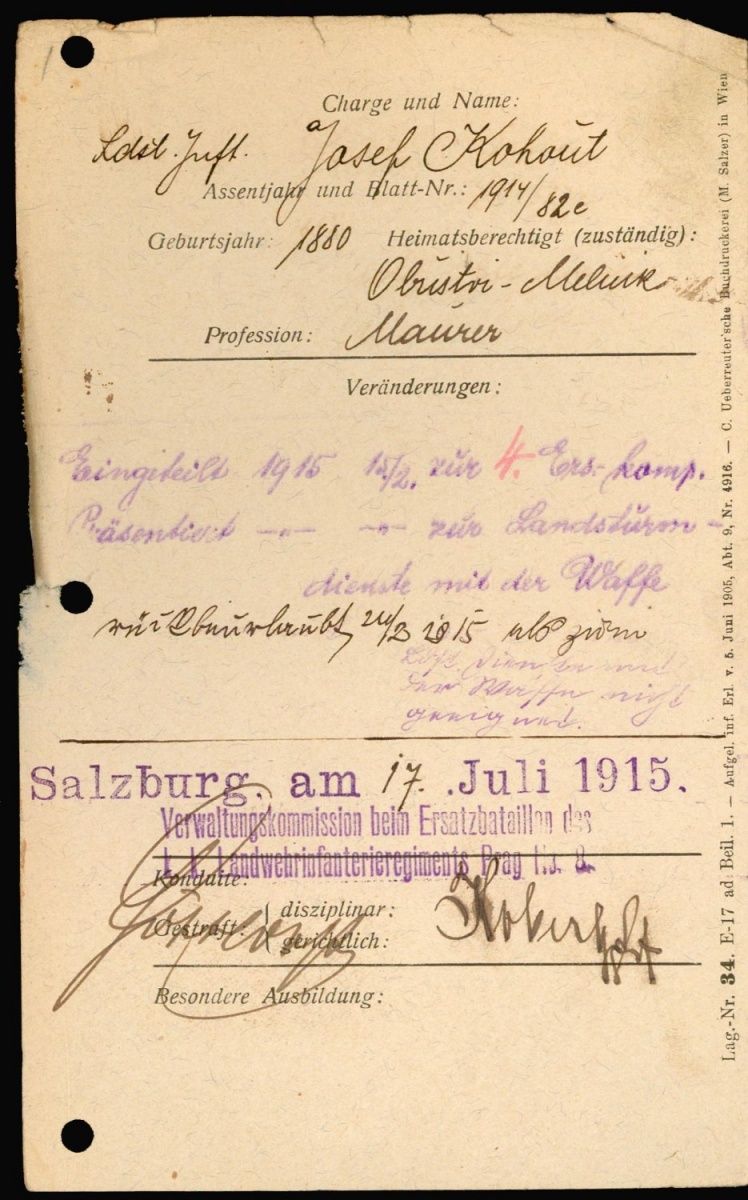 Charge und Name:
Ldst. Inft. Josef Kohout
Assentjahr und Blatt-Nr.: 1914/82c
Geburtsjahr: 1880 Heimatsberechtigt (zuständig):
Obristvi-Melnik
Profession: Maurer
Veränderungen:
Eingeteilt 1915 15/2. zur 4. Ers.-komp.
Präsentiert —"— —"— zur Landsturm-
dienste mit der Waffe
rückbeurlaubt, 1915 als zum
Ldst. Dienste mit
der Waffe nicht
geeignet.
Salzburg, am 17. Juli 1915.
Verwaltungskommission beim Ersatzbataillon des
k. k. Landwehrinfanterieregiments Prag No. 8.
Konduite:
Gestraft: disziplinar:
gerichtlich:
Besondere Ausbildung:
Lag.-Nr. 34. E-17 ad Beil. 1. — Aufgel. inf. Erl. v. 5. Juni 1905, Abt. 9, Nr. 4916. — C. Ueberreuter'sche Buchdruckerei (M. Salzer) in Wien